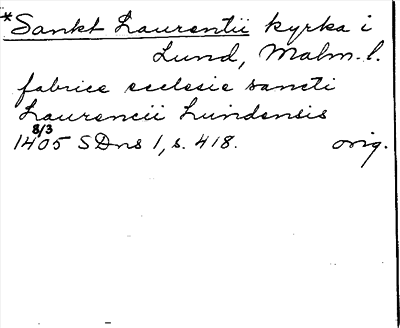 *Sankt Laurentii kyrka i
Lund, Malm. l.
fabrice ecclesie sancti
Laurencii Lundensis
8/3
1405 SDns 1, s. 418. orig.